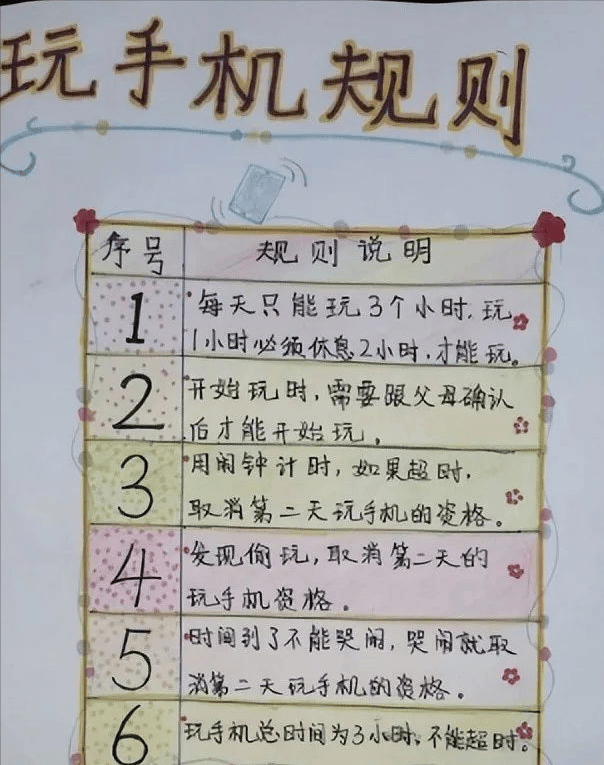 玩手机规则
序号 规则说明
1 每天只能玩3个小时,玩
1小时必须休息2小时,才能玩。
2 开始玩时,需要跟父母确认
后才能开始玩。
3 用闹钟计时,如果超时,
取消第二天玩手机的资格。
4 发现偷玩,取消第二天的
玩手机资格。
5 时间到了不能哭闹,哭闹就取
消第二天玩手机的资格。
6 玩手机总时间为3小时,不能超时。